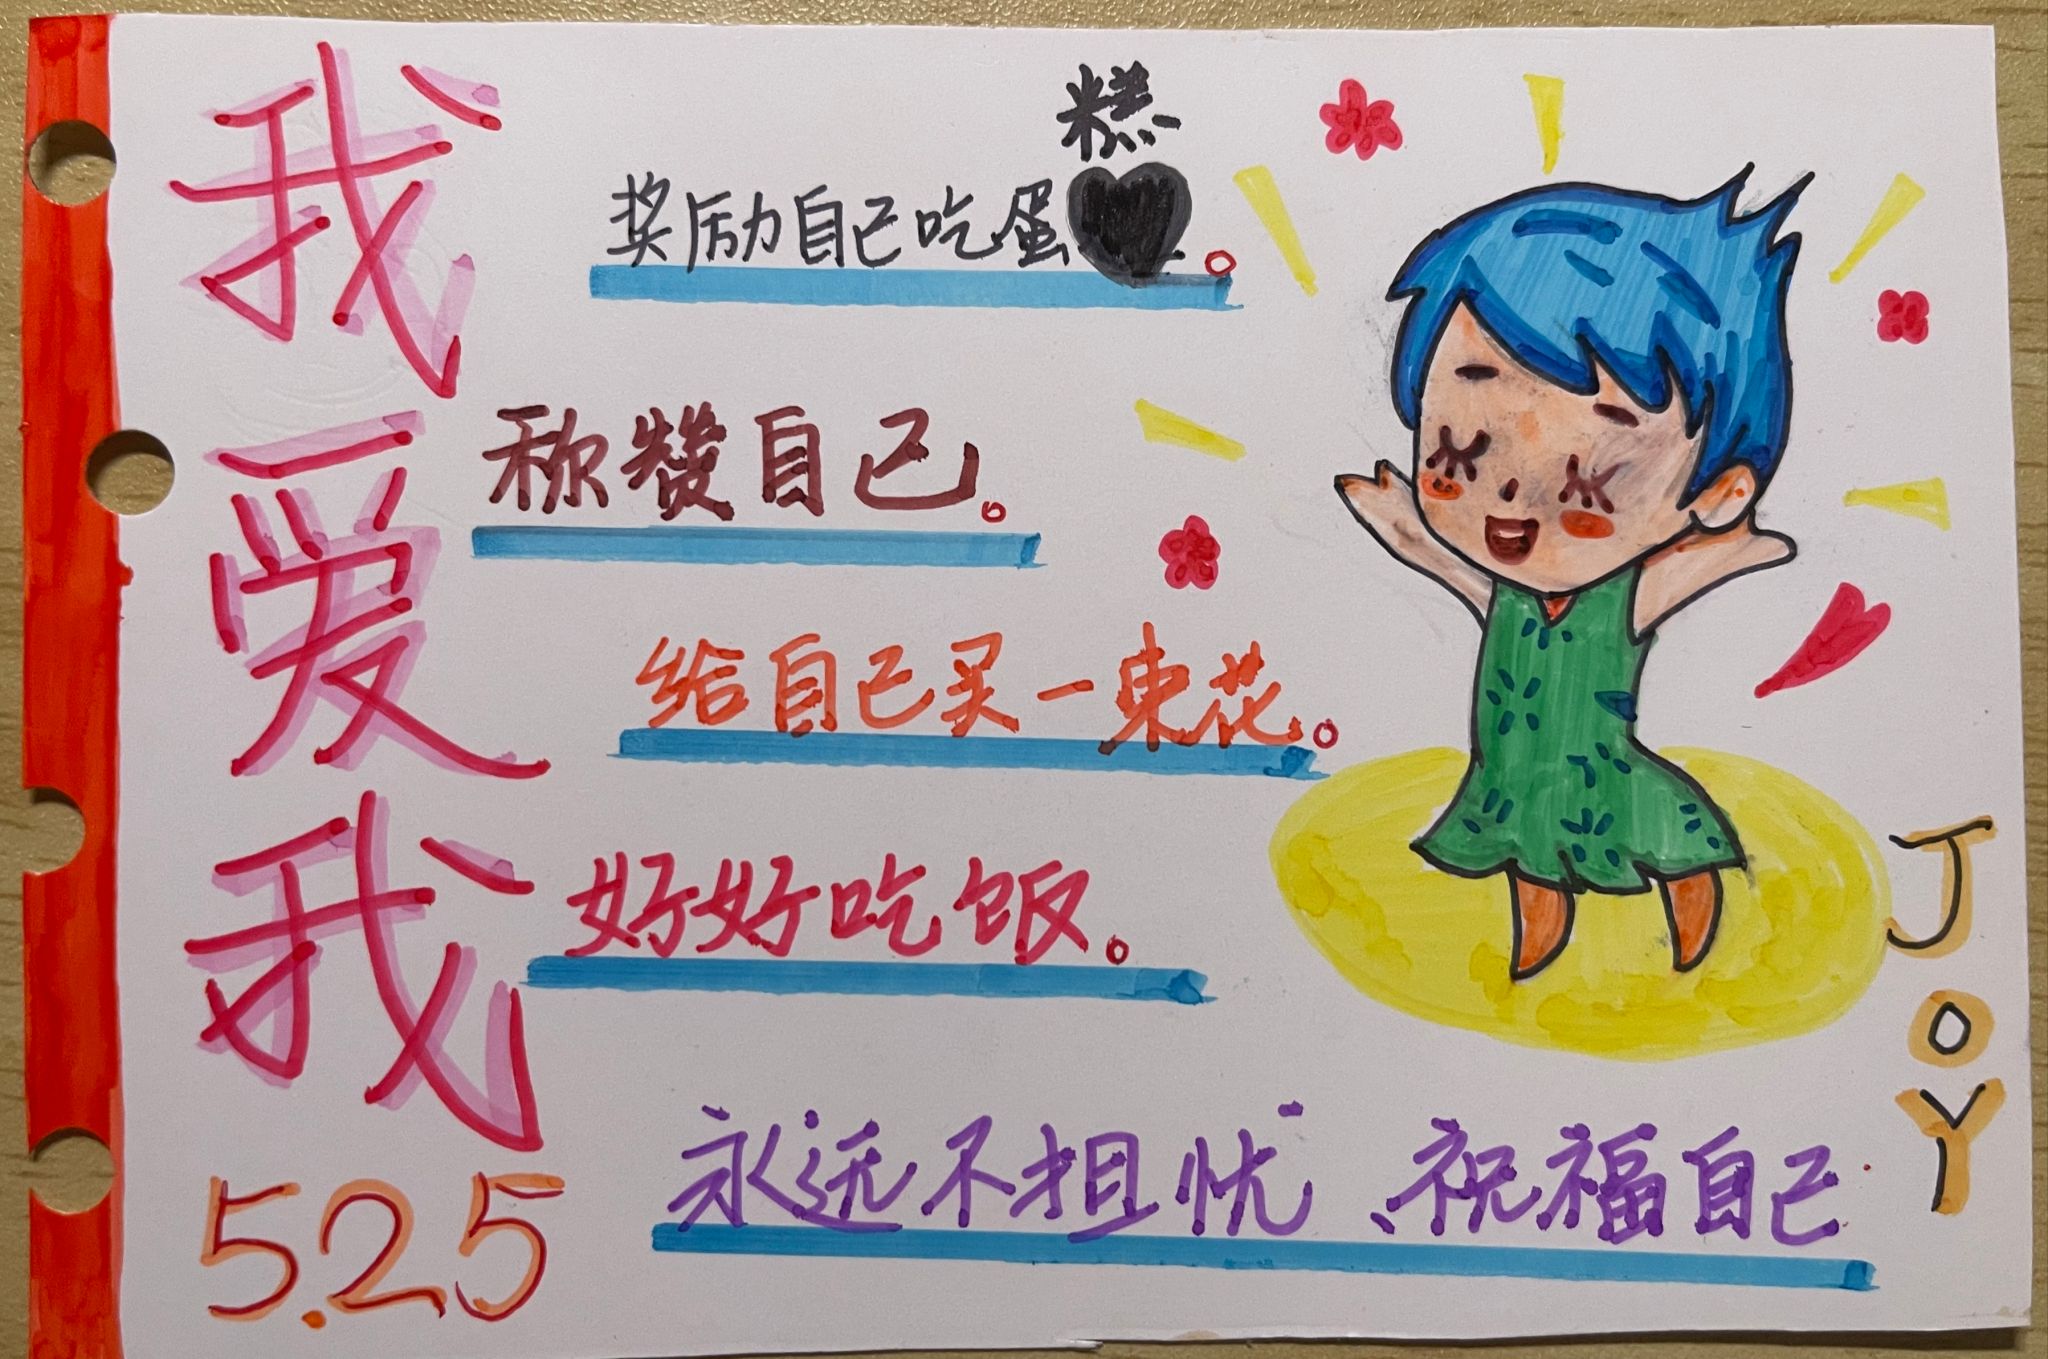 我爱我
5.25
奖励自己吃蛋糕。
称赞自己。
给自己买一束花。
好好吃饭。
永远不担忧、祝福自己
JOY